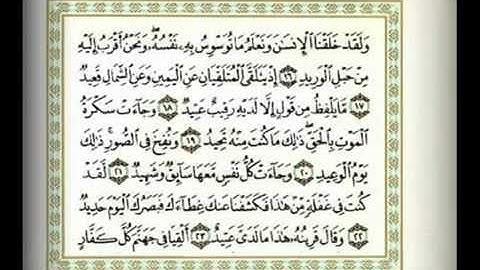 وَلَقَدْ خَلَقْنَا ٱلْإِنسَٰنَ وَنَعْلَمُ مَا تُوَسْوِسُ بِهِۦ نَفْسُهُۥ ۖ وَنَحْنُ أَقْرَبُ إِلَيْهِ
مِنْ حَبْلِ ٱلْوَرِيدِ ١٦ إِذْ يَتَلَقَّى ٱلْمُتَلَقِّيَانِ عَنِ ٱلْيَمِينِ وَعَنِ ٱلشِّمَالِ قَعِيدٌ
١٧ مَّا يَلْفِظُ مِن قَوْلٍ إِلَّا لَدَيْهِ رَقِيبٌ عَتِيدٌ ١٨ وَجَآءَتْ سَكْرَةُ
ٱلْمَوْتِ بِٱلْحَقِّ ۖ ذَٰلِكَ مَا كُنتَ مِنْهُ تَحِيدُ ١٩ وَنُفِخَ فِى ٱلصُّورِ ۚ ذَٰلِكَ
يَوْمُ ٱلْوَعِيدِ ٢٠ وَجَآءَتْ كُلُّ نَفْسٍ مَّعَهَا سَآئِقٌ وَشَهِيدٌ ٢١ لَّقَدْ
كُنتَ فِى غَفْلَةٍ مِّنْ هَٰذَا فَكَشَفْنَا عَنكَ غِطَآءَكَ فَبَصَرُكَ ٱلْيَوْمَ حَدِيدٌ
٢٢ وَقَالَ قَرِينُهُۥ هَٰذَا مَا لَدَىَّ عَتِيدٌ ٢٣ أَلْقِيَا فِى جَهَنَّمَ كُلَّ كَفَّارٍ